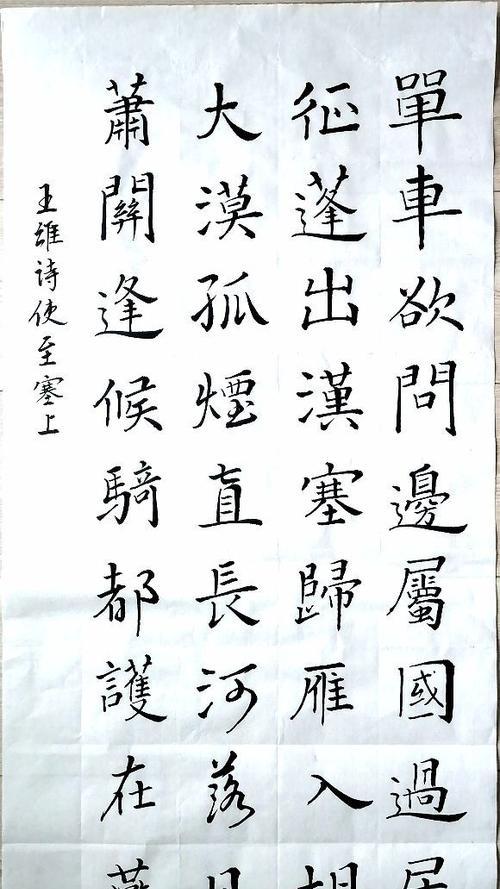 單車欲問邊屬國過
征蓬出漢塞歸雁入
大漠孤煙直長河落
蕭關逢候騎都護在
王维诗使至塞上